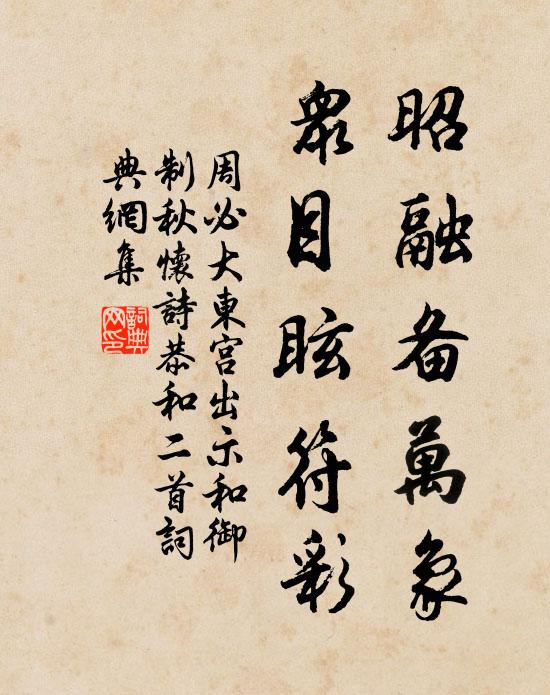 昭融备萬象
衆目眩符彩
周必大東宫出示和御
制秋懷詩恭和二首詞
典網集
詞典
网印